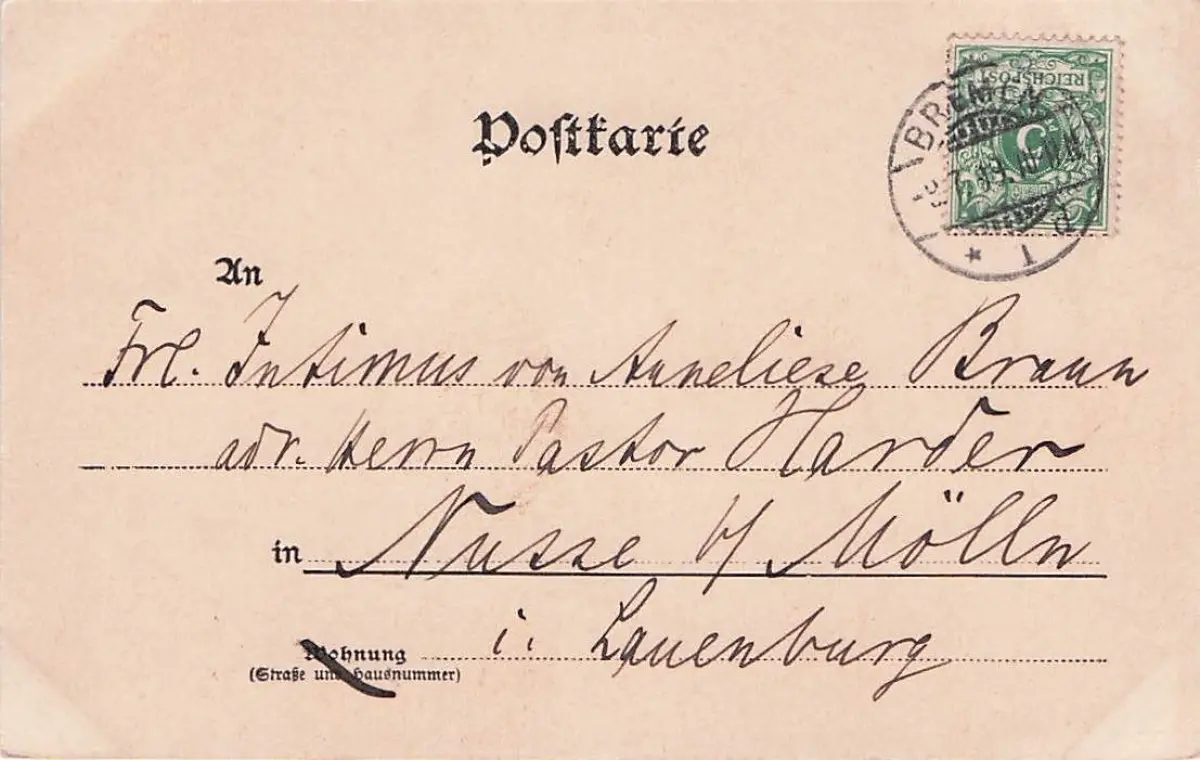 Postkarte
REICHSPOST
5
BREMEN
1
An
Frl. Intimus von Anneliese Braun
adr. Herrn Pastor Harder
in Nusse b/ Mölln
i. Lauenburg
Wohnung
(Straße und Hausnummer)